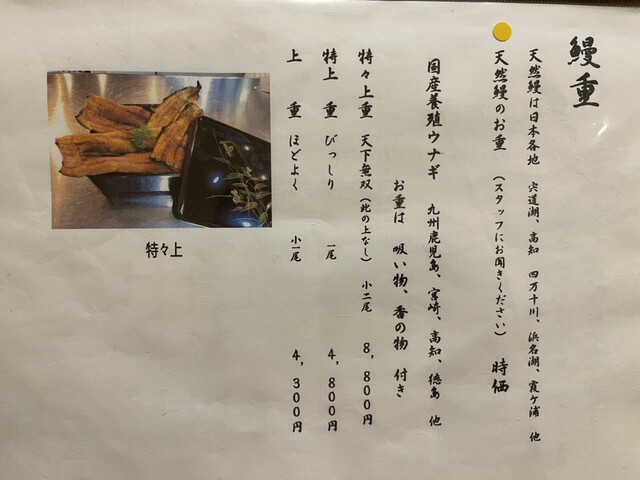 鰻重
天然鰻は日本各地 宍道湖、高知 四万十川、浜名湖、霞ヶ浦 他
天然鰻のお重 (スタッフにお聞きください) 時価
国産養殖ウナギ 九州鹿児島、宮崎、高知、徳島 他
お重は 吸い物、香の物 付き
特々上重 天下無双(此の上なし) 小二尾 8,800円
特上重 びっしり 一尾 4,800円
上重 ほどよく 小一尾 4,300円
特々上